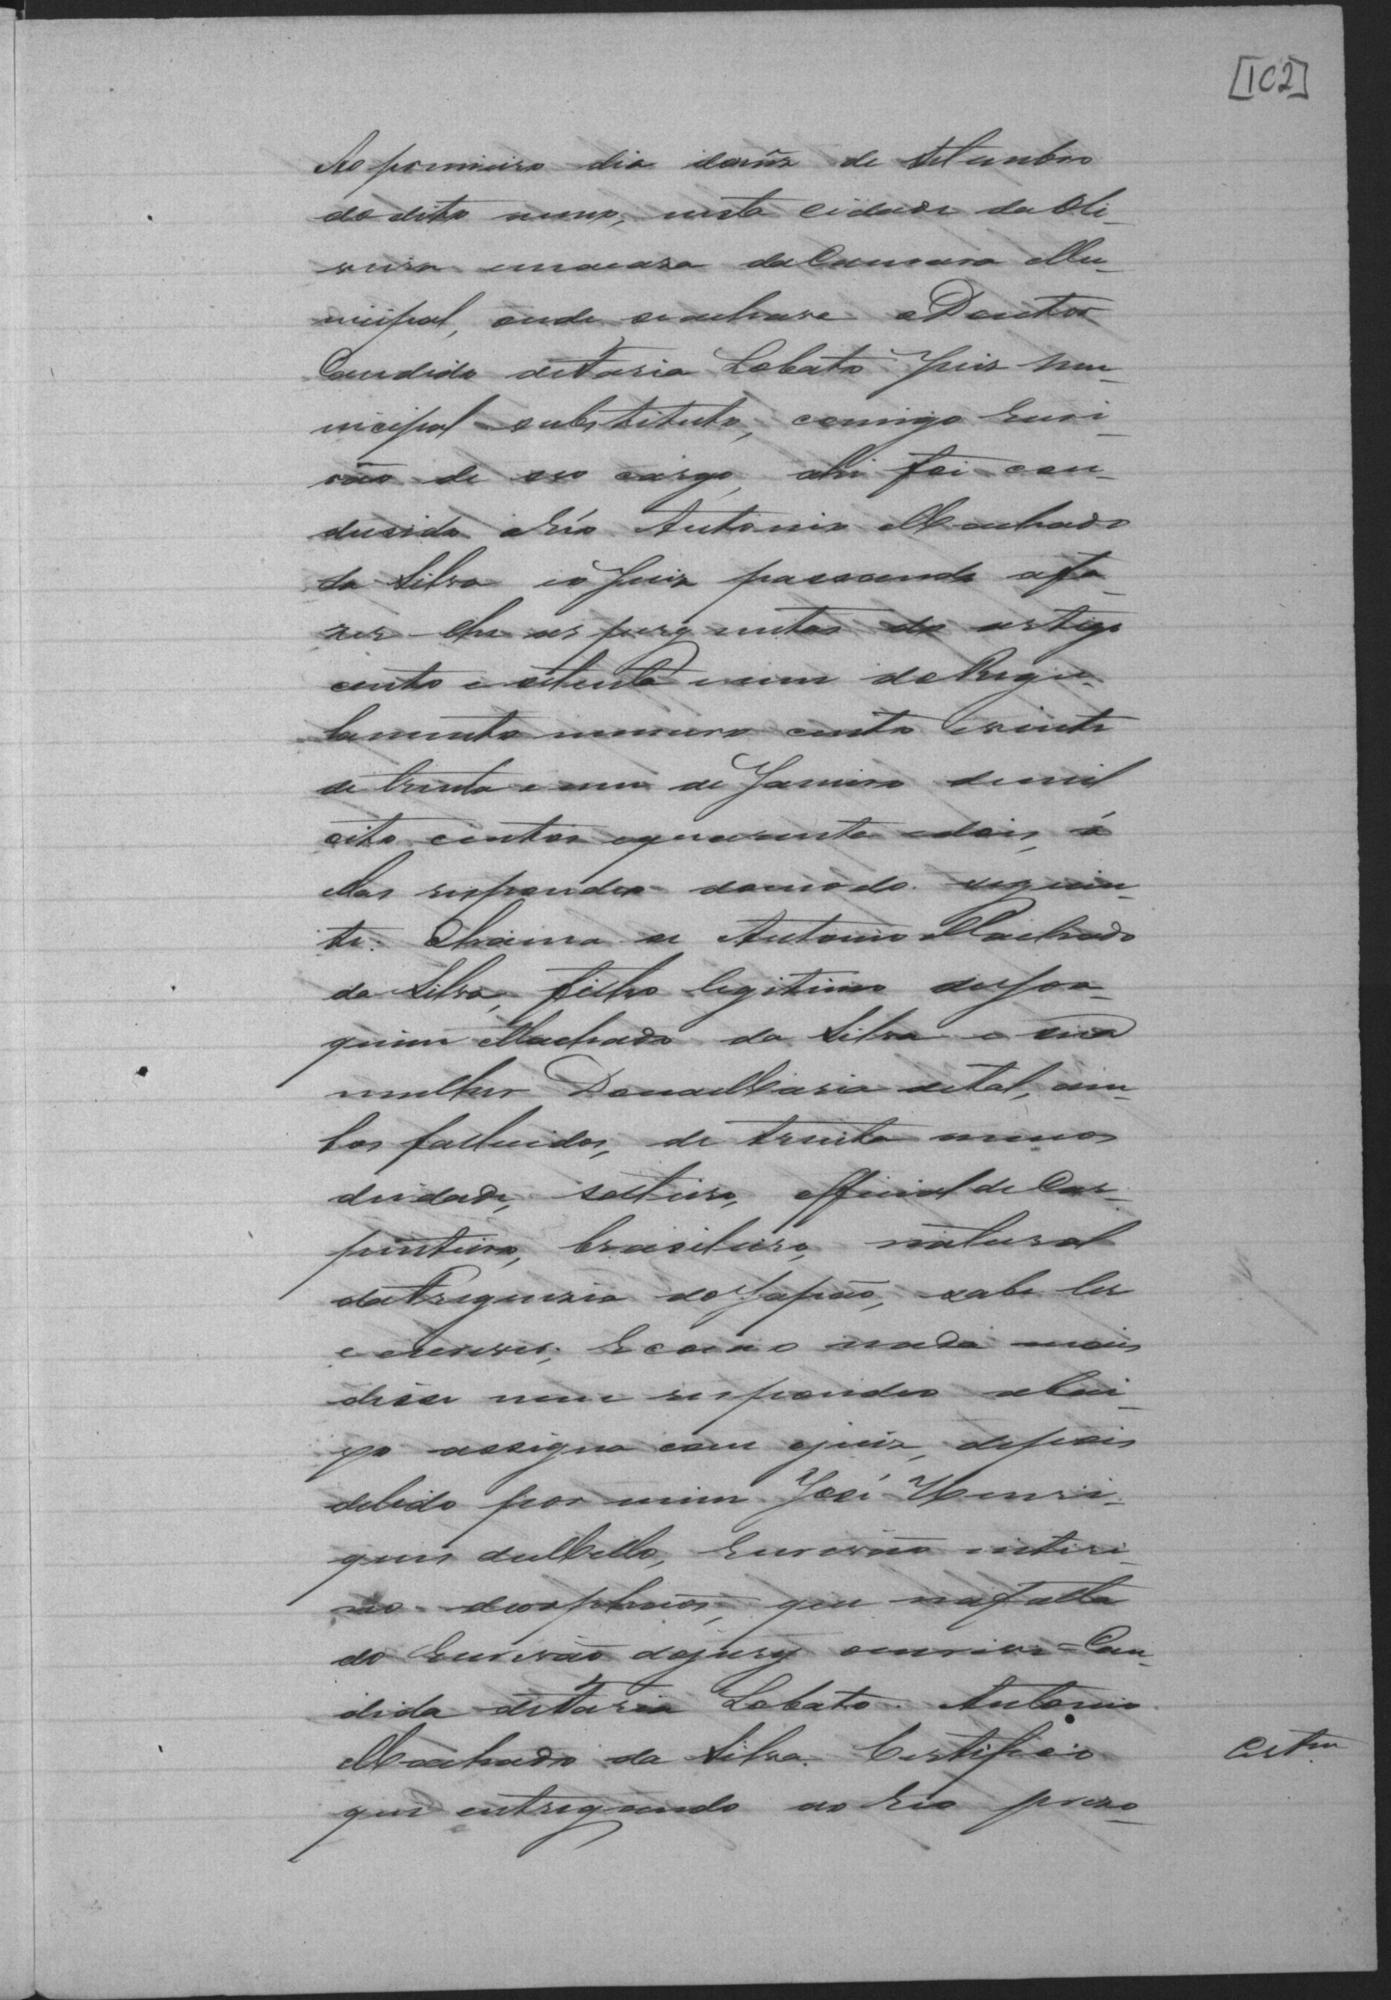 [102]
Ao primeiro dia domez de Setembro
do dito anno, nesta cidade da Oli-
veira emacasa da Camara Mu-
nicipal, onde seachava o Doutor
Candido de Faria Lobato Juiz Mu-
nicipal substituto, comigo Escri-
vão de seo cargo, ahi foi con-
dusido o Réo Antonio Machado
da Silva eo Juiz passando afa-
zer lhe as perguntas do artigo
cento e setenta e um do Regu-
lamento numero cento e vinte
de trinta e um de Janeiro de mil
oito centos equarenta edois, á
ellas respondeo domodo seguin-
te: Chama se Antonio Machado
da Silva, filho legitimo de Joa-
quim Machado da Silva e sua
mulher Dona Maria de tal, am-
bos fallecidos, de trinta annos
deidade, solteiro, official de Car-
pinteiro, brasileiro, natural
da Freguezia do Japão, sabe ler
e escrever; E como nada mais
disse nem respondeo abai-
xo assigna com ojuiz, depois
delido por mim José Henri-
ques deMello, Escrivão interi-
no deorphaõs, que nafalta
do Escrivão dojury escrivi = Can-
dido de Faria Lobato. Antonio
Machado da Silva. Certifico
que entregando ao Réo prezo
Certm